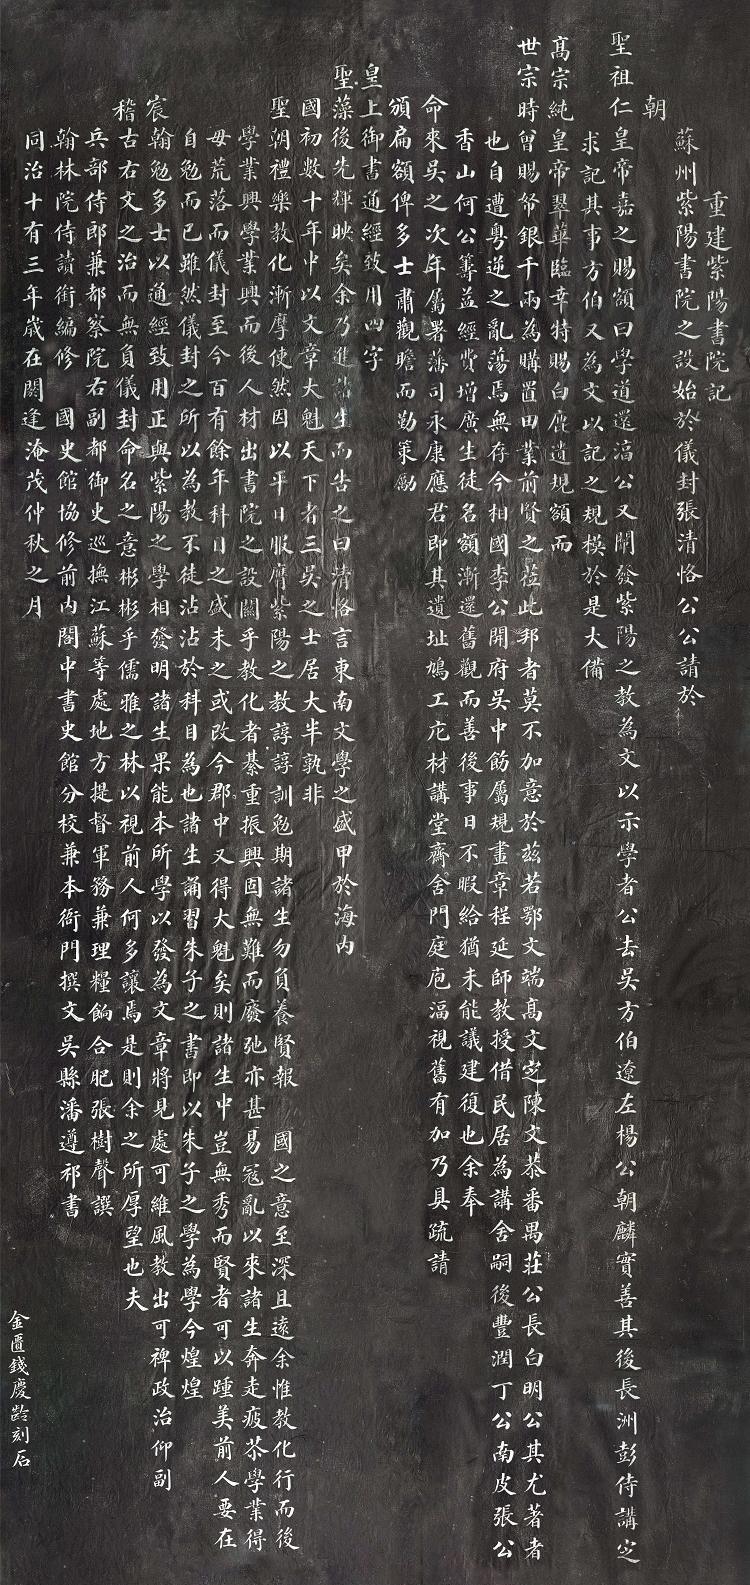 重建紫陽書院記
蘇州紫陽書院之設始於儀封張清恪公公請於
朝
聖祖仁皇帝嘉之賜額曰學道還淳公又闡發紫陽之教為文以示學者公去吳方伯遼左楊公朝麟實善其後長洲彭侍講定
求記其事方伯又為文以記之規模於是大備
高宗純皇帝翠華臨幸特賜白鹿遺規額而
世宗時曾賜帑銀千兩為購置田業前賢之蒞此邦者莫不加意於茲若鄂文端高文定陳文恭番禺莊公長白明公其尤著者
也自遭粵逆之亂蕩焉無存今相國李公開府吳中飭屬規畫章程延師教授借民居為講舍嗣後豐潤丁公南皮張公
香山何公籌益經費增廣生徒名額漸還舊觀而善後事日不暇給猶未能議建復也余奉
命來吳之次年屬署藩司永康應君即其遺址鳩工庀材講堂齋舍門庭庖湢視舊有加乃具疏請
頒扁額俾多士肅觀瞻而勤策勵
皇上御書通經致用四字
聖藻後先輝映矣余乃進諸生而告之曰清恪言東南文學之盛甲於海內
國初數十年中以文章大魁天下者三吳之士居大半孰非
聖朝禮樂教化漸摩使然因以平日服膺紫陽之教諄諄訓勉期諸生勿負養賢報 國之意至深且遠余惟教化行而後
學業興學業興而後人材出書院之設關乎教化者綦重振興固無難而廢弛亦甚易寇亂以來諸生奔走疲苶學業得
毋荒落而儀封至今百有餘年科目之盛未之或改今郡中又得大魁矣則諸生中豈無秀而賢者可以踵美前人要在
自勉而已雖然儀封之所以為教不徒沾沾於科目為也諸生誦習朱子之書即以朱子之學為學今煌煌
宸翰勉多士以通經致用正與紫陽之學相發明諸生果能本所學以發為文章將見處可維風教出可裨政治仰副
稽古右文之治而無負儀封命名之意彬彬乎儒雅之林以視前人何多讓焉是則余之所厚望也夫
兵部侍郎兼都察院右副都御史巡撫江蘇等處地方提督軍務兼理糧餉合肥張樹聲譔
翰林院侍讀銜編修 國史館協修前內閣中書史館分校兼本衙門撰文吳縣潘遵祁書
同治十有三年歲在閼逢淹茂仲秋之月
金匱錢慶齡刻石